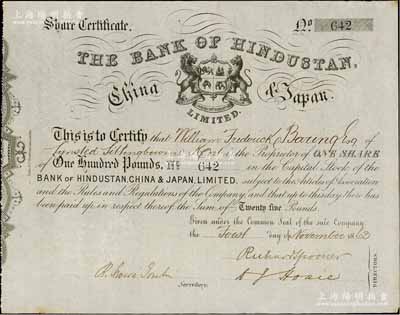 上海陽明拍賣
Share Certificate.
No 642
THE BANK OF HINDUSTAN,
China & Japan.
LIMITED.
This is to Certify that William Frederick Baring Esq of
Kent is the Proprietor of ONE SHARE
of One Hundred Pounds, No 642 in the Capital Stock of the
BANK OF HINDUSTAN, CHINA & JAPAN, LIMITED. subject to the Articles of Association
and the Rules and Regulations of the Company, and that up to this day there has
been paid up in respect thereof the Sum of Twenty five Pounds.
Given under the Common Seal of the said Company
the First day of November 1862
DIRECTORS.
Secretary.
上海陽明拍賣